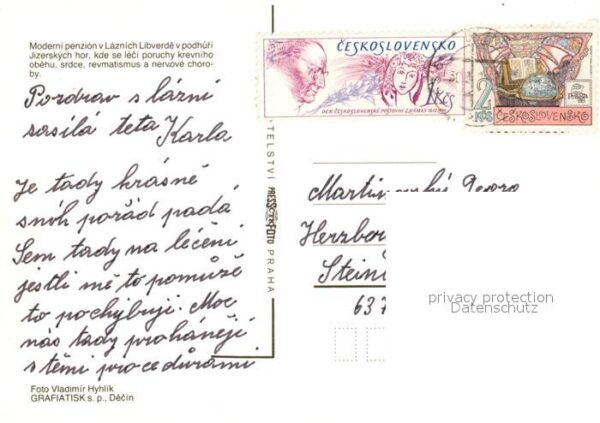 Moderní penzión v Lázních Libverdě v podhůří
Jizerských hor, kde se léčí poruchy krevního
oběhu, srdce, revmatismus a nervové choro-
by.
Pozdrav s lázní
sosilá teta Karla
Je tady krásně
sníh pořád padá
Sem tady na léčení
jestli mě to pomůže
to pochybuji. Moc
nás tady prohánějí
s těmi procedůrami
Foto Vladimír Hyhlík
GRAFIATISK s. p., Děčín
TELSTVÍ PRESSFOTO PRAHA
ČESKOSLOVENSKO
1 Kčs
DEN ČESKOSLOVENSKÉ POŠTOVNÍ ZNÁMKY
2 Kčs
ČESKOSLOVENSKO
Herzber
Stein
637
privacy protection
Datenschutz